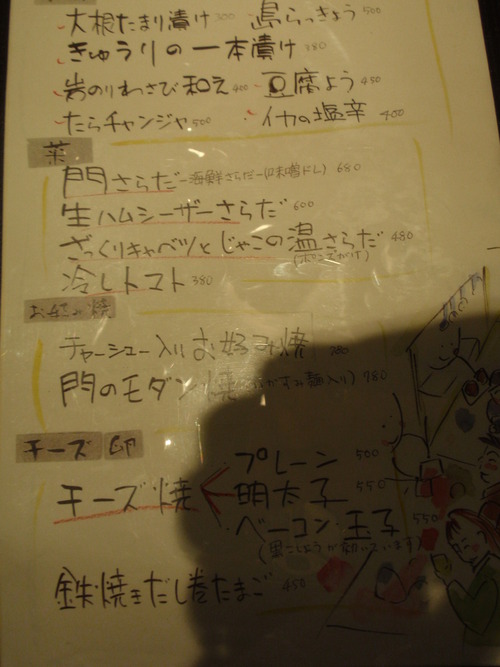 大根たまり漬け 300 島らっきょう 500
きゅうりの一本漬け 380
岩のりわさび和え 400 豆腐よう 450
たらチャンジャ 500 イカの塩辛 400
菜
門さらだ-海鮮さらだ-(味噌ドレ) 680
生ハムシーザーさらだ 600
ざっくりキャベツとじゃこの温さらだ 480
(ポンズがけ)
冷しトマト 380
お好み焼
チャーシュー入りお好み焼 780
門のモダン焼 かすみ麺入り) 780
チーズ 卵
チーズ焼 プレーン 500
明太子 550
ベーコン玉子 550
(黒こしょうが効いています)
鉄焼きだし巻たまご 450